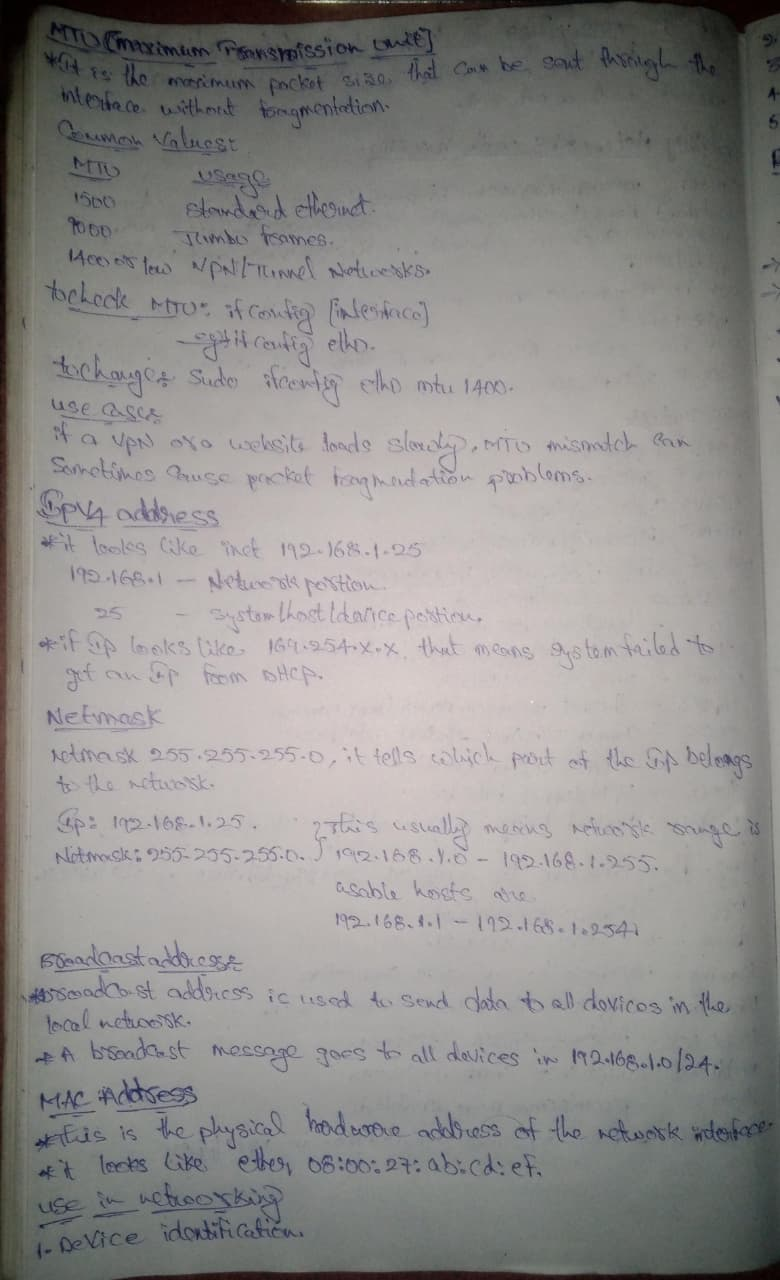 MTU [Maximum Transmission Unit]
* It is the maximum packet size that can be sent through the
interface without fragmentation.
Common Values:
MTU usage
1500 standard ethernet.
9000 Jumbo frames.
1400 or low VPN/Tunnel Networks.
to check MTU: ifconfig [interface]
eg: ifconfig eth0.
to change: sudo ifconfig eth0 mtu 1400.
use case:
if a VPN or a website loads slowly, MTU mismatch can
Sometimes Cause packet fragmentation problems.
IPV4 address
* it looks like inet 192.168.1.25
192.168.1 - Network portion
25 - system/host/device portion.
* if Ip looks like 169.254.x.x, that means system failed to
get an Ip from DHCP.
Netmask
Netmask 255.255.255.0, it tells which part of the Ip belongs
to the network.
Ip: 192.168.1.25. } This usually means network range is
Netmask: 255.255.255.0. } 192.168.1.0 - 192.168.1.255.
usable hosts are
192.168.1.1 - 192.168.1.254.
Broadcast address:
* broadcast address is used to send data to all devices in the
local network.
* A broadcast message goes to all devices in 192.168.1.0/24.
MAC Address
* This is the physical hardware address of the network interface.
* it looks like ether, 08:00:27:ab:cd:ef.
use in networking
1. Device identification.